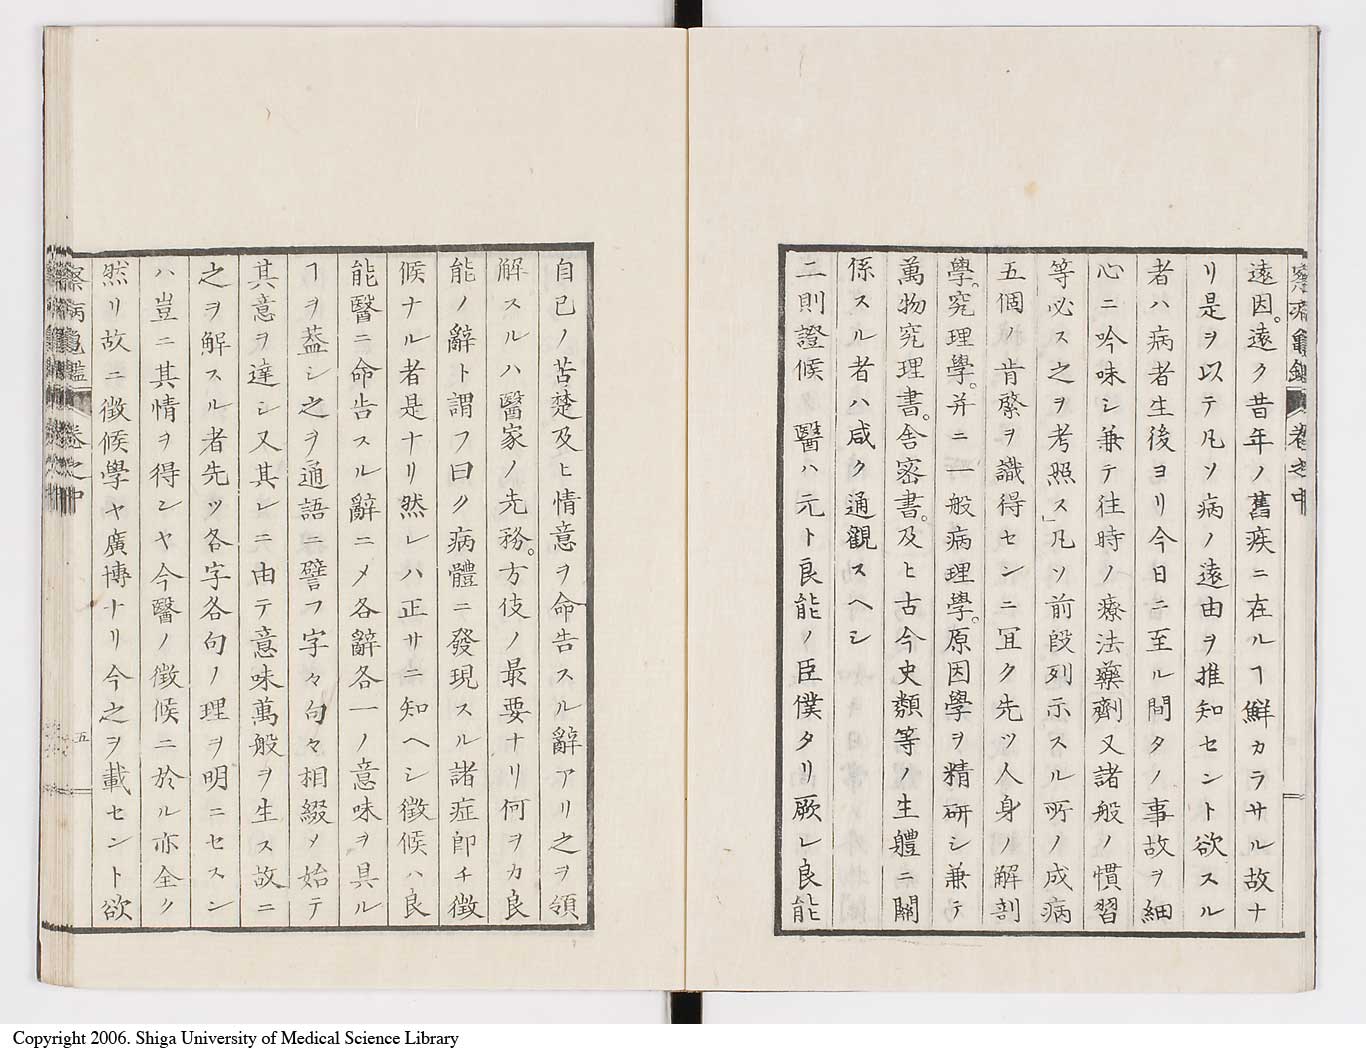 察病亀鑑 卷之中
遠因。遠ク昔年ノ舊疾ニ在ルヿ鮮カラサル故ナ
リ是ヲ以テ凡ソ病ノ遠由ヲ推知セント欲スル
者ハ病者生後ヨリ今日ニ至ル間タノ事故ヲ細
心ニ吟味シ兼テ往時ノ療法藥劑又諸般ノ慣習
等必ス之ヲ考照ス」凡ソ前段列示スル所ノ成病
五個ノ肯綮ヲ識得センニ冝ク先ツ人身ノ解剖
學。究理學。并ニ一般病理學。原因學ヲ精研シ兼テ
萬物究理書。舎密書。及ヒ古今史類等ノ生軆ニ關
係スル者ハ咸ク通觀スヘシ
二則證候 醫ハ元ト良能ノ臣僕タリ厥レ良能
自已ノ苦楚及ヒ情意ヲ命告スル辭アリ之ヲ領
解スルハ醫家ノ先務。方伎ノ最要ナリ何ヲカ良
能ノ辭ト謂フ曰ク病體ニ發現スル諸症即チ徴
候ナル者是ナリ然レハ正サニ知ヘシ徴候ハ良
能醫ニ命告スル辭ニメ各辭各一ノ意味ヲ具ル
ヿヲ葢シ之ヲ通語ニ譬フ字々句々相綴メ始テ
其意ヲ達シ又其レニ由テ意味萬般ヲ生ス故ニ
之ヲ解スル者先ツ各字各句ノ理ヲ明ニセスン
ハ豈ニ其情ヲ得ンヤ今醫ノ徴候ニ於ル亦全ク
然リ故ニ徴候學ヤ廣博ナリ今之ヲ載セント欲
察病亀鑑 卷之中
五
Copyright 2006. Shiga University of Medical Science Library